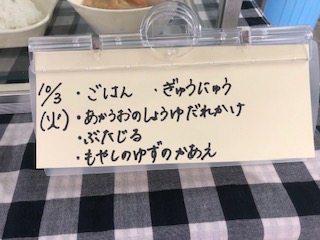 10/3 ・ごはん ・ぎゅうにゅう
(火) ・あかうおのしょうゆだれかけ
・ぶたじる
・もやしのゆずのかあえ